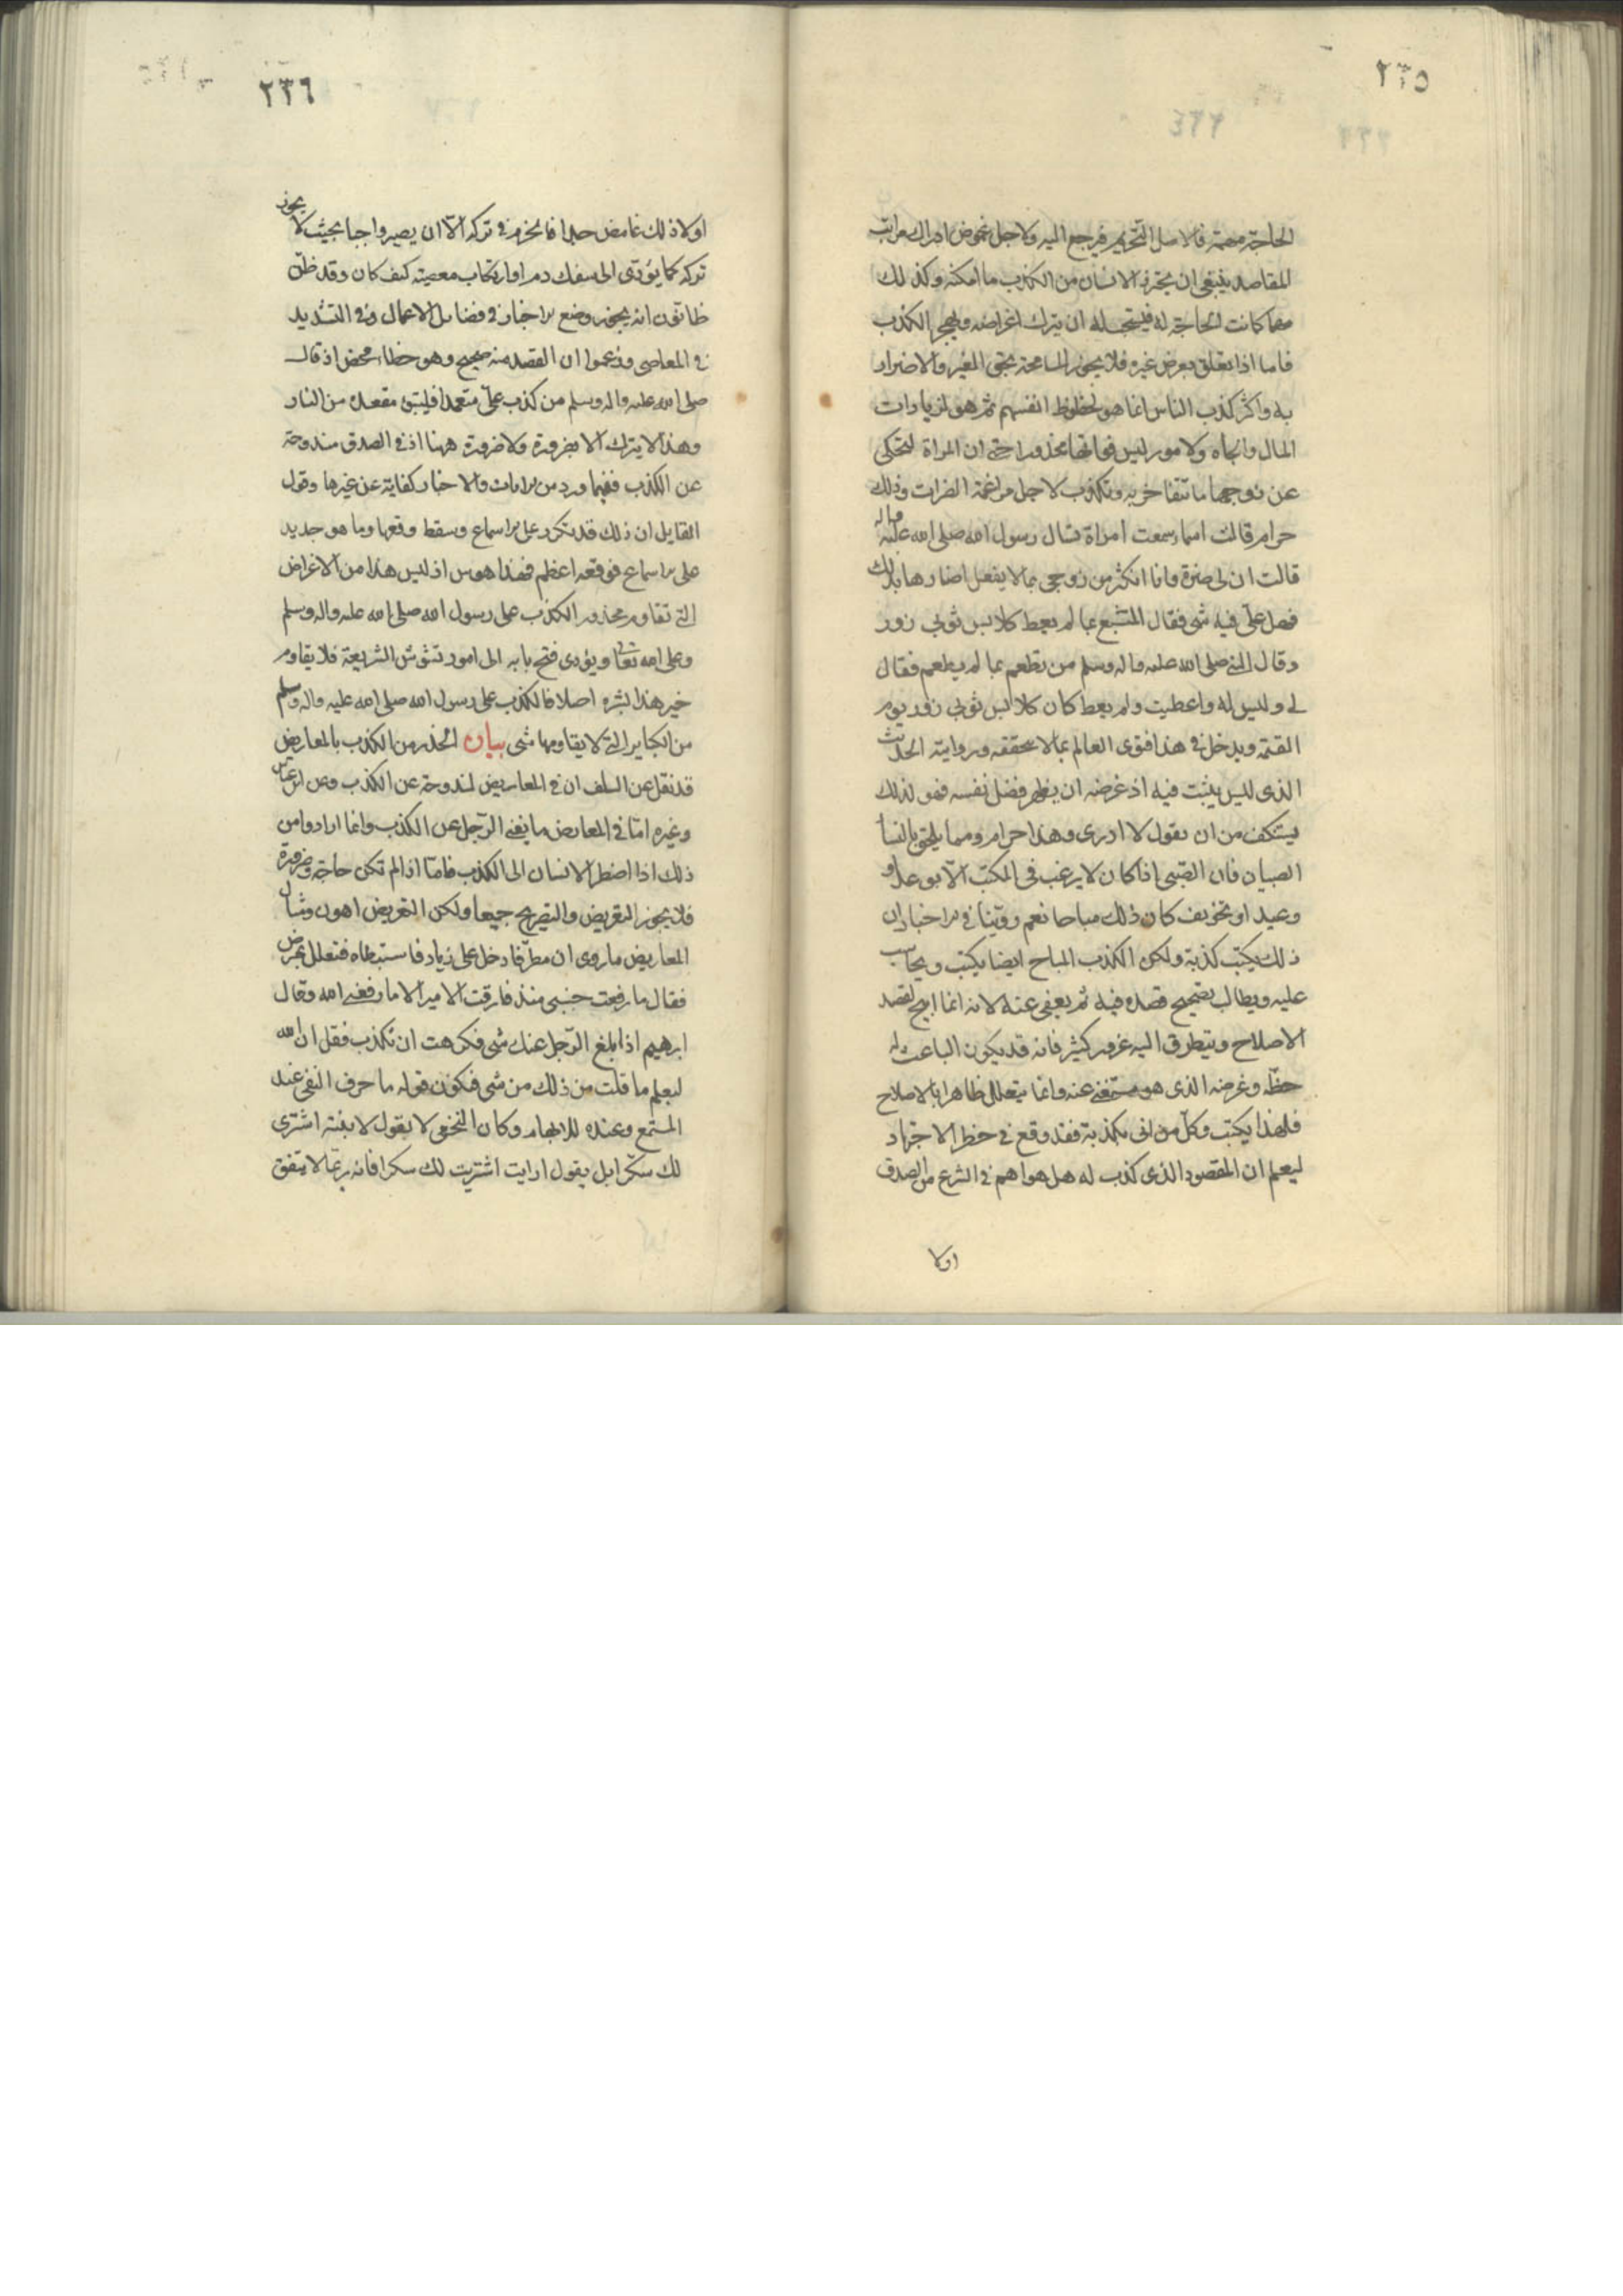 ٢٣٥
الحاجة مهمة فالاصل التحريم فيرجع اليه ولاجل غموض ادراك مراتب
المقاصد ينبغى ان يحترز الانسان من الكذب ما امكنه وكذلك
مهما كانت الحاجة له فيستحب له ان يترك اغراضه ويهجر الكذب
فاما اذا تعلق بعرض غيره فلا يجوز المسامحة بحق الغير والاضرار
به واكثر كذب الناس انما هو لحظوظ انفسهم ثم هو لزيادات
المال والجاه ولامور ليس فواتها محذورا حتى ان المراة لتحكى
عن زوجها ما تتفاخر به وتكذب لاجل مراغمة الضرات وذلك
حرام قالت اسماء سمعت امراة تسال رسول الله صلى الله عليه واله
قالت ان لى ضرة وانا اتكثر من زوجى بما لا يفعل اضارها بذلك
فهل علىّ فيه شى فقال المتشبع بما لم يعط كلابس ثوبى زور
وقال النبى صلى الله عليه واله وسلم من تطعم بما لم يطعم فقال
لى وليس له واعطيت ولم يعط كان كلابس ثوبى زور يوم
القيمة ويدخل فى هذا فتوى العالم بما لا يتحققه ورواية الحديث
الذى ليس يثبت فيه اذ غرضه ان يظهر فضل نفسه فهو لذلك
يستنكف من ان يقول لا ادرى وهذا حرام ومما يلتحق بالنسا
الصبيان فان الصبّى اذا كان لا يرغب فى المكتب الّا بوعد او
وعيد او تخويف كان ذلك مباحا نعم روّينا فى الاخبار ان
ذلك يكتب كذبة ولكن الكذب المباح ايضا يكتب ويحاسب
عليه ويطالب بتصحيح قصده فيه ثم يعفى عنه لانه انما ابيح لقصد
الاصلاح ويتطرق اليه غرور كثير فانه قد يكون الباعث له
حظّه وغرضه الذى هو مستغنى عنه وانما يتعلل ظاهرا بالاصلاح
فلهذا يكتب وكلّ من اتى بكذبة فقد وقع فى خطر الاجتهاد
ليعلم ان المقصود الذى كذب له هل هو اهم فى الشرع من الصدق
اولا
٢٣٦
اولا وذلك غامض جدا فالحزم فى تركه الّا ان يصير واجبا بحيث لا يجوز
تركه كما يؤدّى الى سفك دم او ارتكاب معصية كيف كان وقد ظنّ
ظانّون انه يجوز وضع الاخبار فى فضايل الاعمال وفى التشديد
فى المعاصى وزعموا ان القصد منه صحيح وهو خطاء محض اذ قال
صلى الله عليه واله وسلم من كذب علىّ متعمدا فليتبؤ مقعده من النار
وهذا لا يترك الا بضرورة ولا ضرورة ههنا اذ فى الصدق مندوحة
عن الكذب ففيما ورد من الايات والاخبار كفاية عن غيرها وقول
القايل ان ذلك قد تكرر على الاسماع وسقط وقعها وما هو جديد
على الاسماع فوقعه اعظم فهذا هوس اذ ليس هذا من الاغراض
التى تقاوم محذور الكذب على رسول الله صلى الله عليه واله وسلم
وعلى الله تعالى ويؤدى فتح بابه الى امور تشوش الشريعة فلا يقاوم
خير هذا بشره اصلا فالكذب على رسول الله صلى الله عليه واله وسلم
من الكباير التى لا يقاومها شى بيان الحذر من الكذب بالمعاريض
قد نقل عن السلف ان فى المعاريض لمندوحة عن الكذب وعن ابن عباس
وغيره امّا فى المعاريض ما يغنى الرّجل عن الكذب وانما ارادوا من
ذلك اذا اضطر الانسان الى الكذب فامّا اذا لم تكن حاجة وضرورة
فلا يجوز التعريض والتصريح جميعا ولكن التعريض اهون ومثال
المعاريض ما روى ان مطرّفا دخل على زياد فاستبطاه فتعلل بمرض
فقال ما رفعت جنبى منذ فارقت الامير الا ما رفعنى الله وقال
ابرهيم اذا بلغ الرّجل عنك شى فكرهت ان تكذب فقل ان الله
ليعلم ما قلت من ذلك من شى فيكون قوله ما حرف النفى عند
المستمع وعنده للابهام وكان النخعى لا يقول لابنته اشترى
لك سكّرا بل يقول ارايت لو اشتريت لك سكرا فانه ربّما لا يتفق